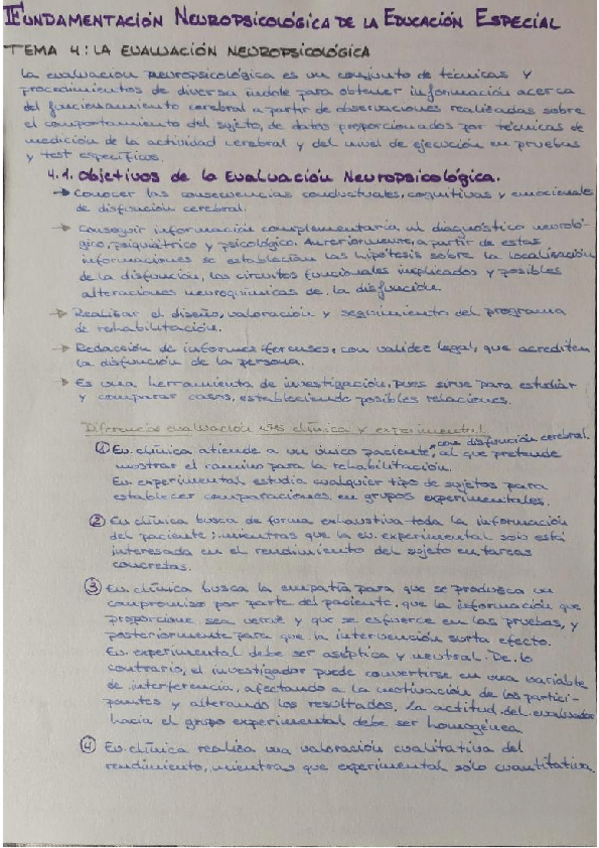 FUNDAMENTACIÓN NEUROPSICOLÓGICA DE LA EDUCACIÓN ESPECIAL
TEMA 4: LA EVALUACIÓN NEUROPSICOLÓGICA
La evaluación neuropsicológica es un conjunto de técnicas y
procedimientos de diversa índole para obtener información acerca
del funcionamiento cerebral a partir de observaciones realizadas sobre
el comportamiento del sujeto, de datos proporcionados por técnicas de
medición de la actividad cerebral y del nivel de ejecución en pruebas
y test específicos.
4.1. Objetivos de la Evaluación Neuropsicológica.
→ Conocer las consecuencias conductuales, cognitivas y emocionales
de disfunción cerebral.
→ Conseguir información complementaria al diagnóstico neuroló-
gico, psiquiátrico y psicológico. Anteriormente, a partir de estas
informaciones se establecían las hipótesis sobre la localización
de la disfunción, los circuitos funcionales implicados y posibles
alteraciones neuroquímicas de la disfunción.
→ Realizar el diseño, valoración y seguimiento del programa
de rehabilitación.
→ Redacción de informes forenses, con validez legal, que acrediten
la disfunción de la persona.
→ Es una herramienta de investigación, pues sirve para estudiar
y comparar casos, estableciendo posibles relaciones.
Diferencias evaluación clínica y experimental.
① Ev. clínica atiende a un único paciente, con disfunción cerebral, al que pretende
mostrar el camino para la rehabilitación.
Ev. experimental estudia cualquier tipo de sujetos para
establecer comparaciones en grupos experimentales.
② Ev. clínica busca de forma exhaustiva toda la información
del paciente; mientras que la ev. experimental solo está
interesada en el rendimiento del sujeto en tareas
concretas.
③ Ev. clínica busca la empatía para que se produzca un
compromiso por parte del paciente, que la información que
proporcione sea veraz y que se esfuerce en las pruebas, y
posteriormente para que la intervención surta efecto.
Ev. experimental debe ser aséptica y neutral. De lo
contrario, el investigador puede convertirse en una variable
de interferencia, afectando a la motivación de los partici-
pantes y alterando los resultados. La actitud del evaluador
hacia el grupo experimental debe ser homogénea.
④ Ev. clínica realiza una valoración cualitativa del
rendimiento, mientras que experimental sólo cuantitativa.